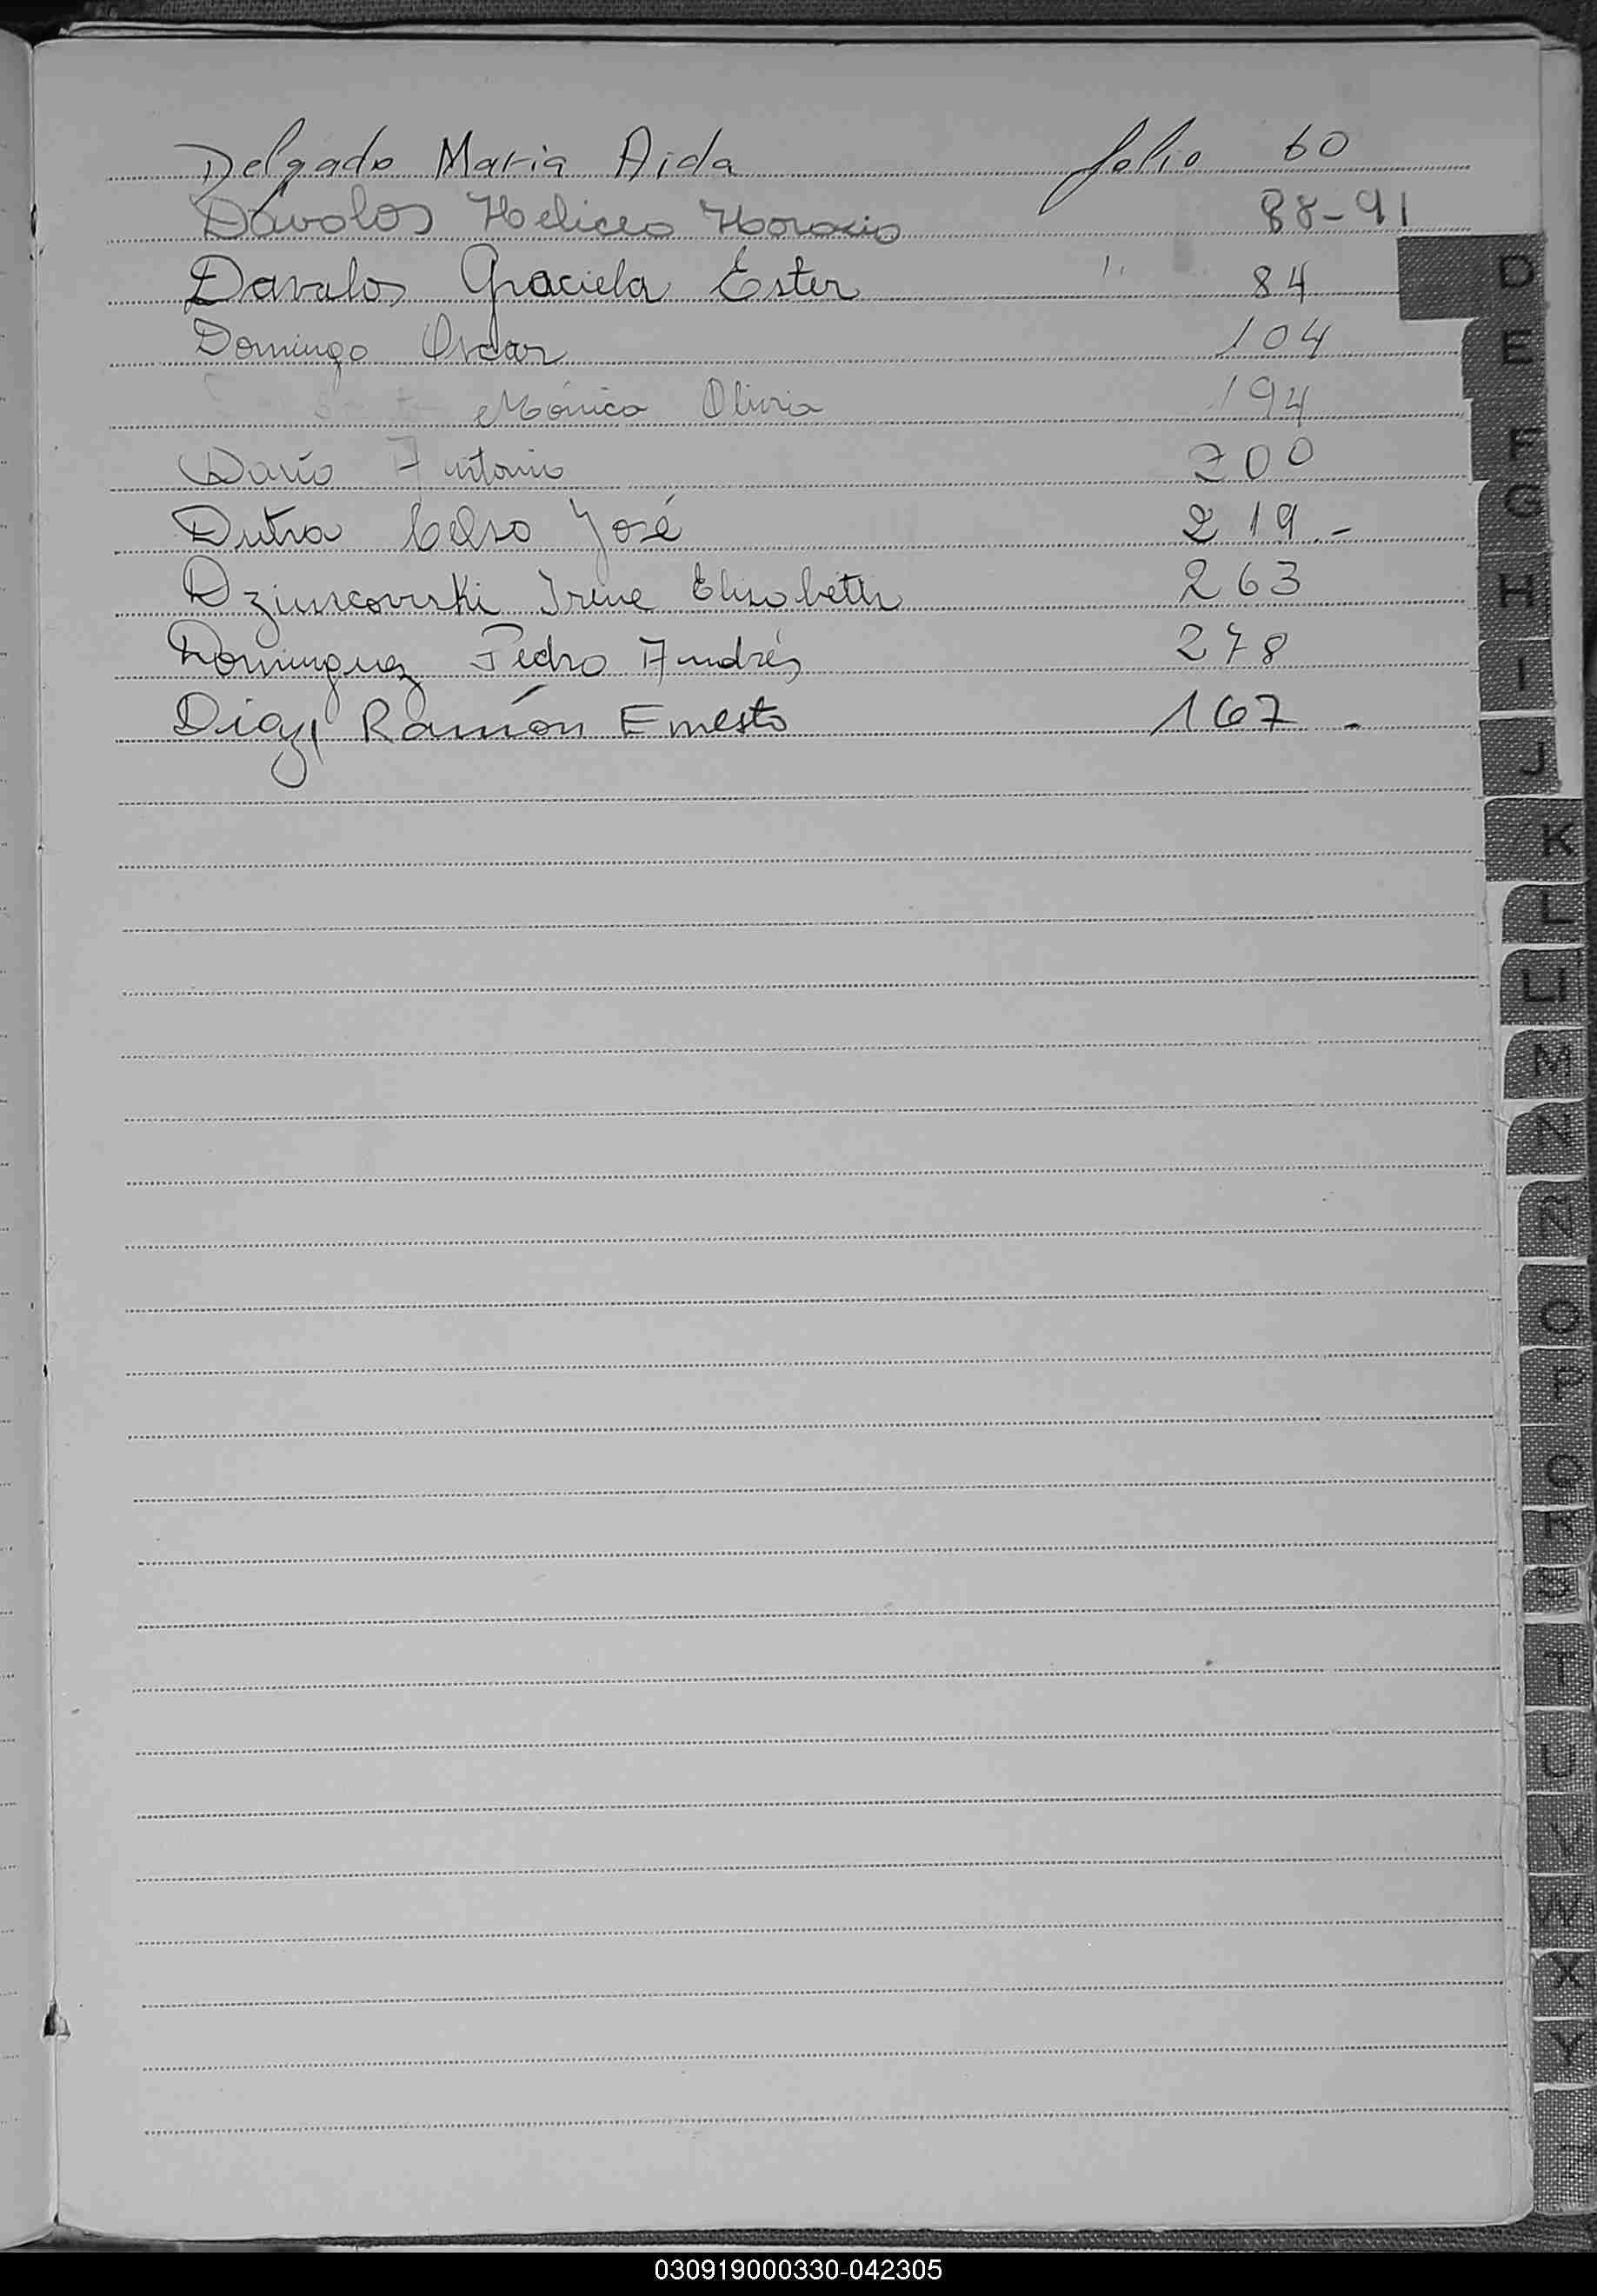 Delgado Maria Aida folio 60
Dávalos Heliceo Horacio 88-91
Davalos Graciela Ester " 84
Domingo Oscar 104
Mónica Olivia 194
Darío Antonio 200
Dutra Celso José 219.-
Irene Elisabeth 263
Dominguez Pedro Andrés 278
Diaz, Ramón Ernesto 167 -
D
E
F
G
H
I
J
K
L
LL
M
N
Ñ
O
P
Q
R
S
T
U
V
W
X
Y
030919000330-042305